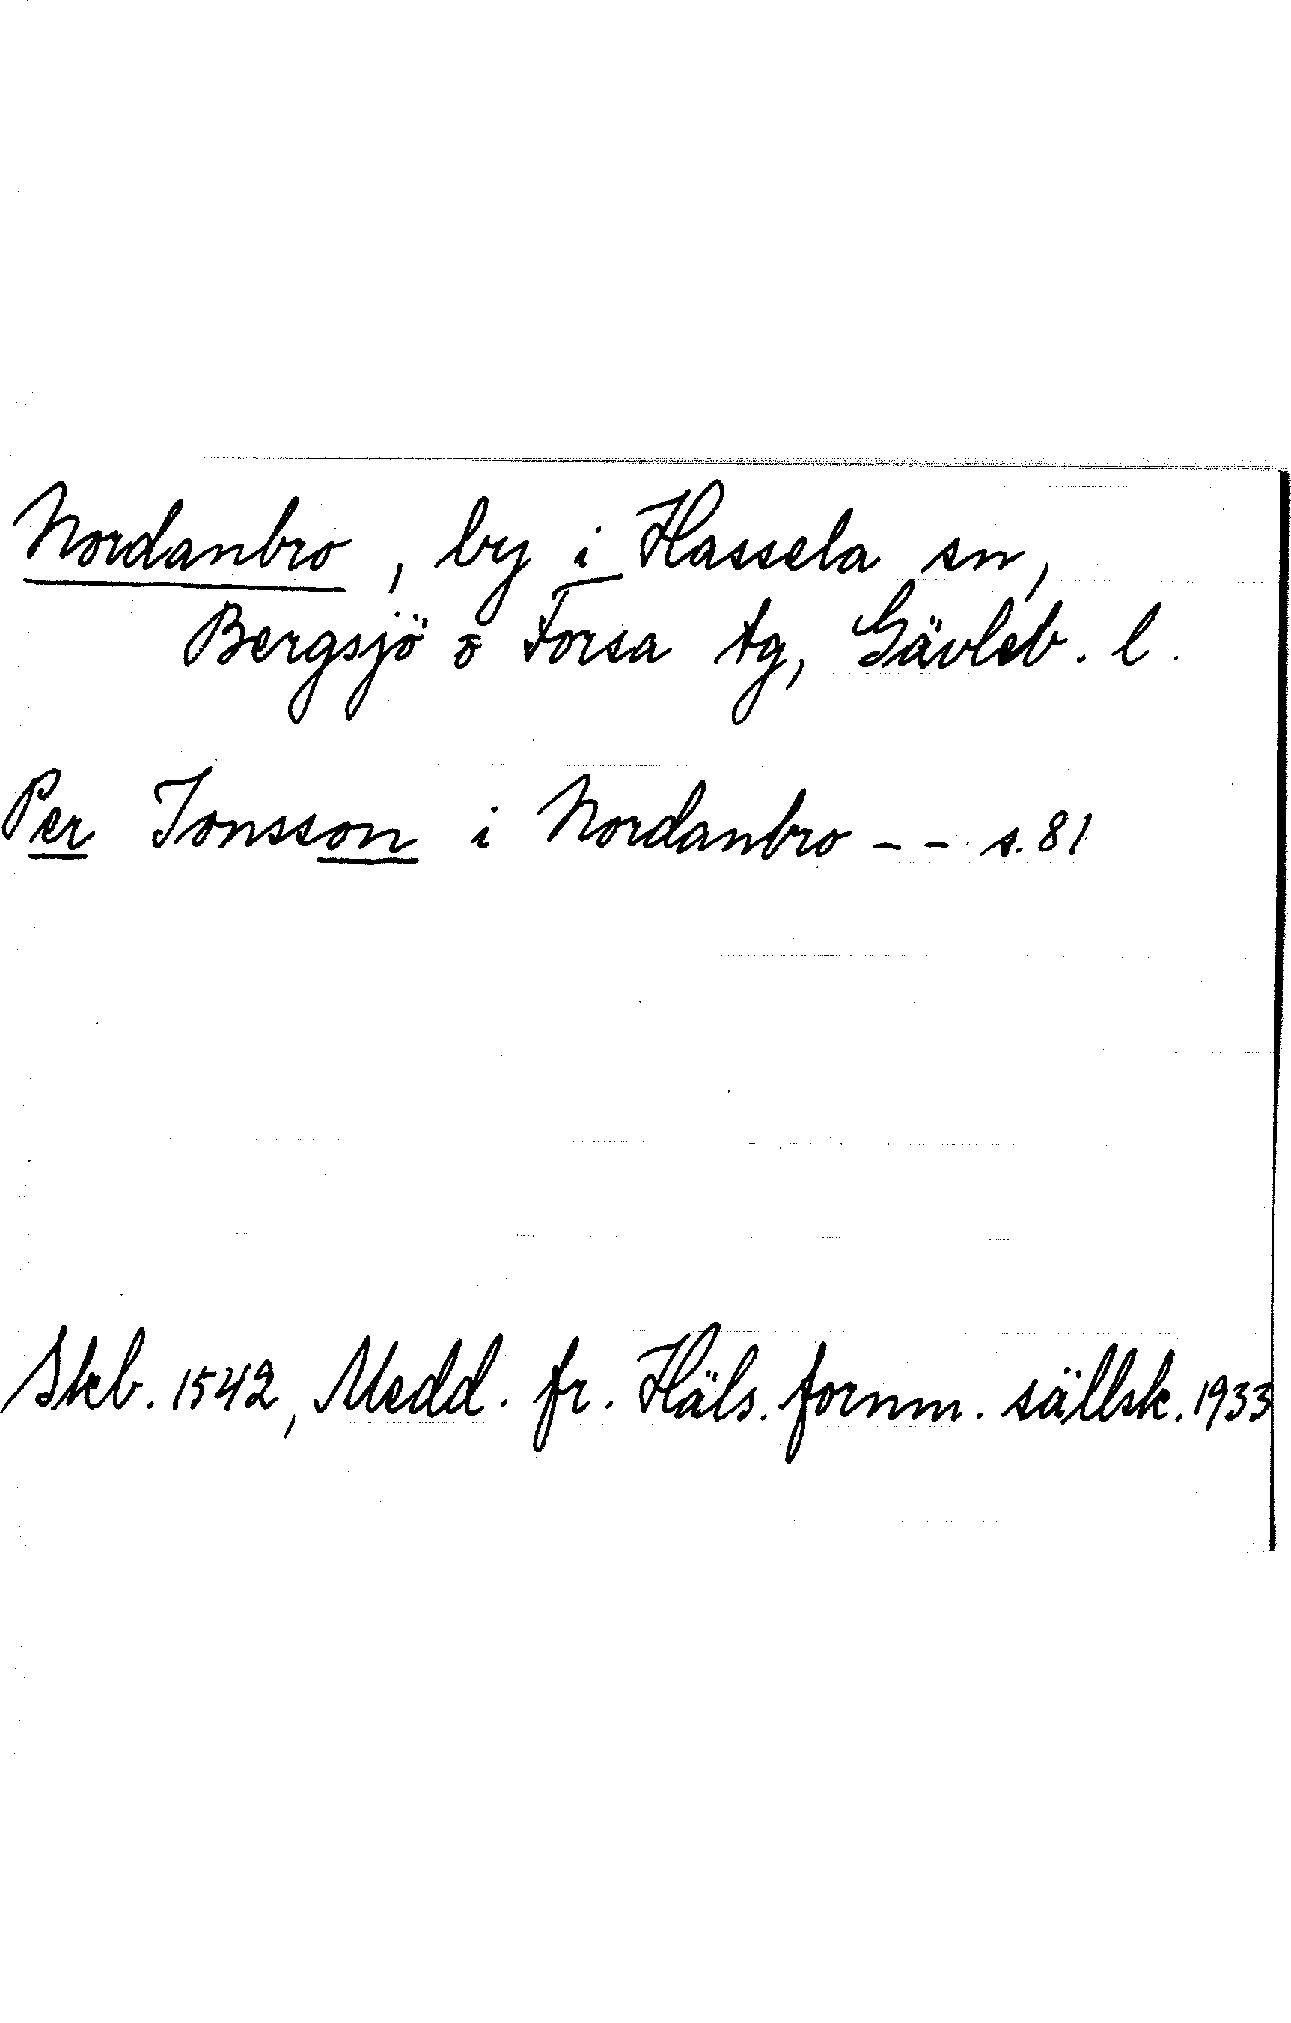 Nordanbro, by i Hassela sn,
Bergsjö o Forsa tg, Gävleb. l.
Per Jonsson i Nordanbro - - s. 81
Skb. 1542, Medd. fr. Häls. fornm. sällsk. 1933